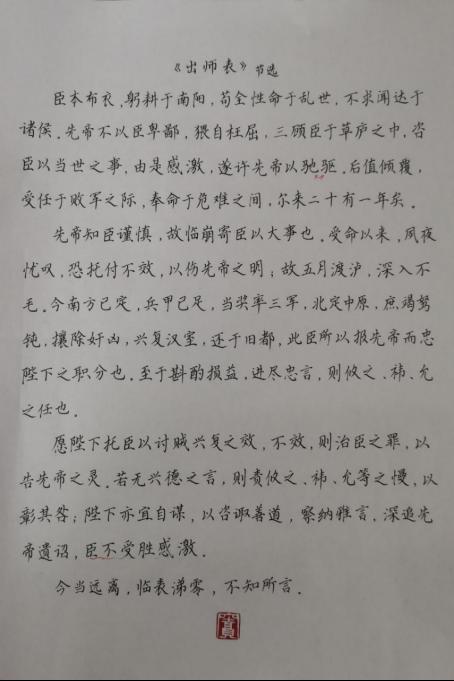 《出师表》节选
臣本布衣,躬耕于南阳,苟全性命于乱世,不求闻达于
诸侯.先帝不以臣卑鄙,猥自枉屈,三顾臣于草庐之中,咨
臣以当世之事,由是感激,遂许先帝以驰驱.后值倾覆,
受任于败军之际,奉命于危难之间,尔来二十有一年矣.
先帝知臣谨慎,故临崩寄臣以大事也.受命以来,夙夜
忧叹,恐托付不效,以伤先帝之明;故五月渡泸,深入不
毛.今南方已定,兵甲已足,当奖率三军,北定中原,庶竭驽
钝,攘除奸凶,兴复汉室,还于旧都,此臣所以报先帝而忠
陛下之职分也.至于斟酌损益,进尽忠言,则攸之、祎、允
之任也.
愿陛下托臣以讨贼兴复之效,不效,则治臣之罪,以
告先帝之灵.若无兴德之言,则责攸之、祎、允等之慢,以
彰其咎;陛下亦宜自谋,以咨诹善道,察纳雅言.深追先
帝遗诏,臣不受胜感激.
今当远离,临表涕雾,不知所言.